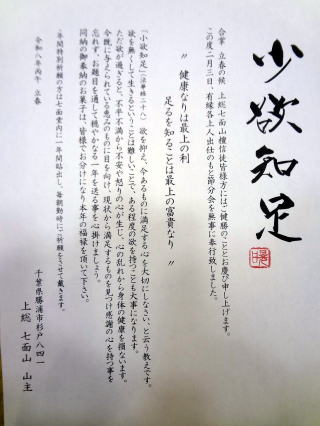 少欲知足
合掌 立春の候 上総七面山檀信徒皆様方にはご健勝のこととお慶び申し上げます。
この度二月三日、有縁各上人出仕のもと節分会を無事に奉行致しました。
〝 健康なりは最上の利
足るを知ることは最上の富貴なり 〟
「小欲知足」(法華経二十八) 欲を抑え、今あるものに満足する心を大切にしなさい、と云う教えです。
欲を無くして生きるということは難しいことで、ある程度の欲を持つことも大事になります。
ただ欲が過ぎると、不平不満から不安や怒りの心が生じ、心の乱れから身体の健康を損ないます。
今既に与えられている恵みのものに目を向け、現状から満足するものを見つけ感謝の心を持つ事を
忘れず、お題目を通して穏やかなる一年を送る事を心掛けましょう。
同納の御奉納のお菓子は、皆様でお分けになり本年の福禄を頂いて下さい。
・年間特別祈願の方は七面堂内に一年間貼出し、毎朝勤時にご祈願をさせて戴きます。
令和八年丙午 立春
千葉県勝浦市杉戸八四一
上総 七面山 山主